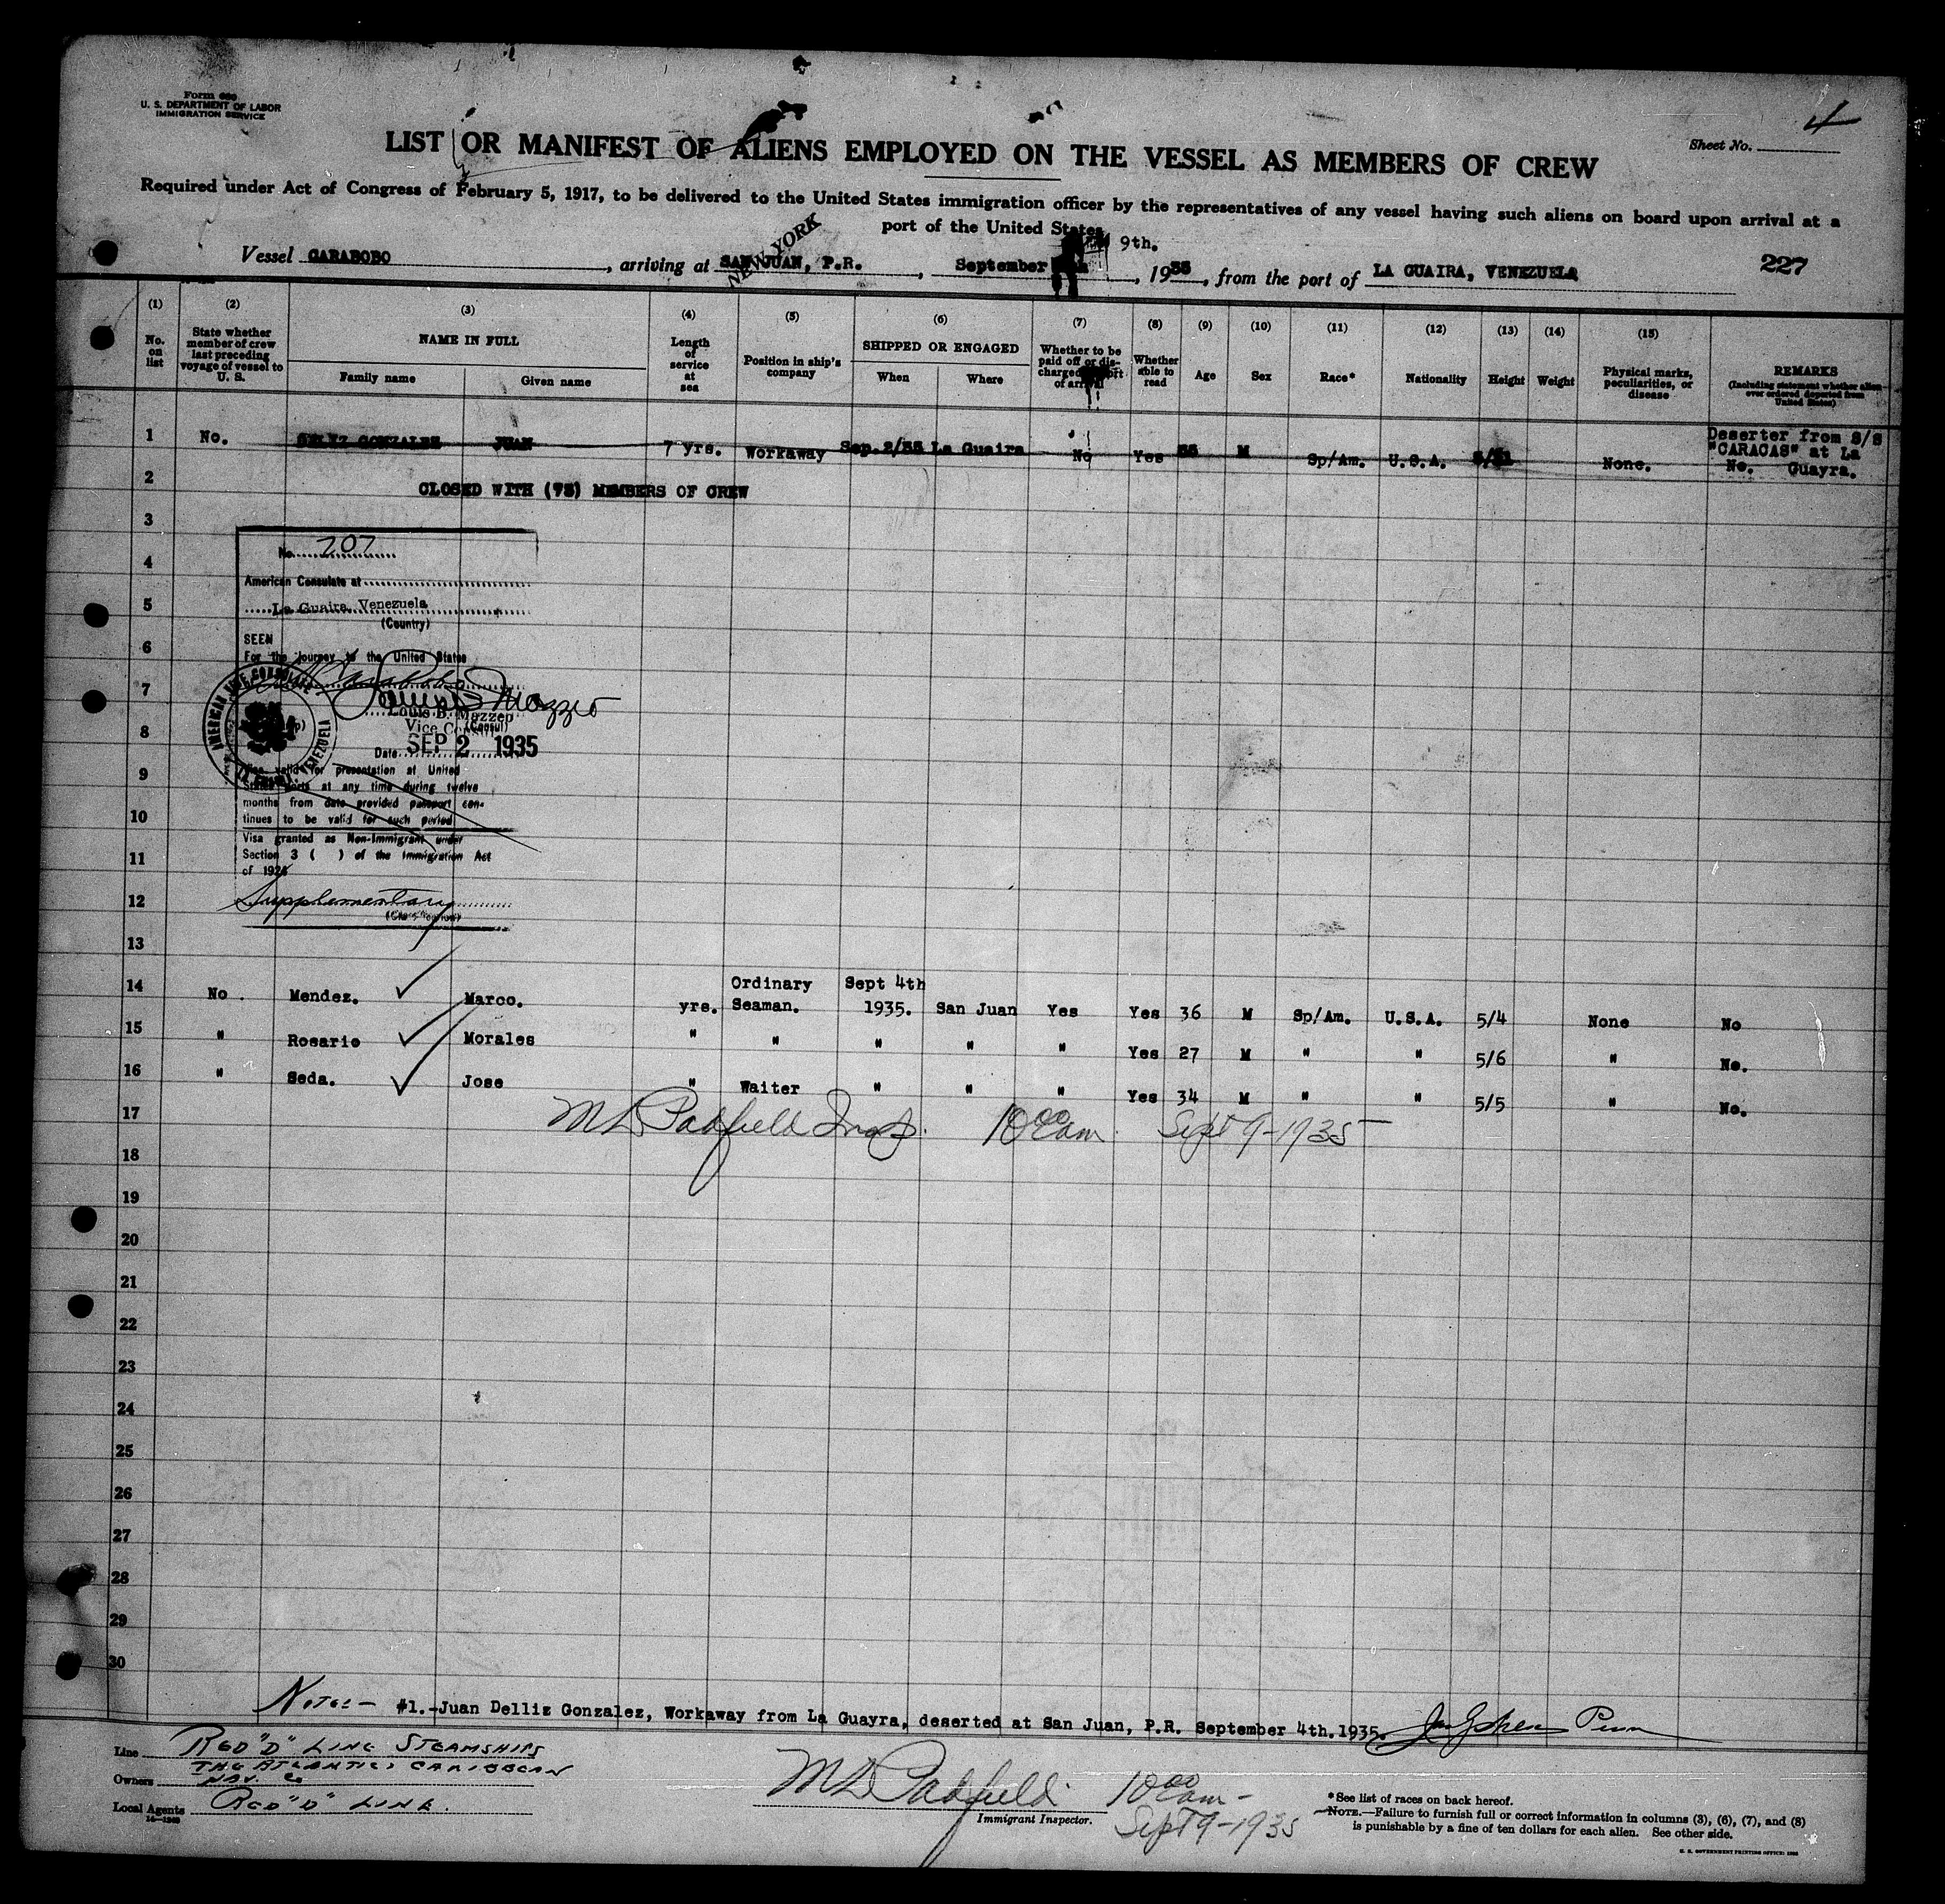 Form 680
U. S. DEPARTMENT OF LABOR
IMMIGRATION SERVICE
4
Sheet No.
LIST OR MANIFEST OF ALIENS EMPLOYED ON THE VESSEL AS MEMBERS OF CREW
Required under Act of Congress of February 5, 1917, to be delivered to the United States immigration officer by the representatives of any vessel having such aliens on board upon arrival at a
port of the United States
NEW YORK
9th.
Vessel CARABOBO, arriving at SAN JUAN, P.R., September, 1935, from the port of LA GUAIRA, VENEZUELA
227
(1) (2) (3) (4) (5) (6) (7) (8) (9) (10) (11) (12) (13) (14) (15)
No. on list
State whether member of crew last preceding voyage of vessel to U. S.
NAME IN FULL
Family name
Given name
Length of service at sea
Position in ship's company
SHIPPED OR ENGAGED
When
Where
Whether to be paid off or discharged at port of arrival
Whether able to read
Age
Sex
Race*
Nationality
Height
Weight
Physical marks, peculiarities, or disease
REMARKS
(Including statement whether alien ever ordered deported from United States)
1 No. GONZALEZ JUAN 7 yrs. Workaway Sep.2/35 La Guaira No Yes M Sp/Am. U.S.A. None. Deserter from S/S
"CARACAS" at La
No. Guayra.
2 CLOSED WITH (73) MEMBERS OF CREW
3
No. 207
4
American Consulate at
5 La Guaira, Venezuela
(Country)
SEEN
6
For the journey to the United States
Carabobo
7
Louis B. Mazzeo
Louis B. Mazzeo
Vice Consul
(Consul)
8
AMERICAN VICE CONSULATE
LA GUAIRA, VENEZUELA
Date SEP 2 1935
9
Visa valid for presentation at United
States ports at any time during twelve
months from date provided passport con-
10
tinues to be valid for such period
Visa granted as Non-Immigrant under
11
Section 3 ( ) of the Immigration Act
of 1924
12 Supplementary
13
14 No. Mendez. Marco. yrs. Ordinary Seaman. Sept 4th 1935. San Juan Yes Yes 36 M Sp/Am. U.S.A. 5/4 None No
15 " Rosario Morales " " " " " Yes 27 M " " 5/6 " No.
16 " Seda. Jose " Waiter " " " Yes 34 M " " 5/5 " No.
17 M L Padfield Insp. 10 00 am. Sept 9-1935
18
19
20
21
22
23
24
25
26
27
28
29
30
Note:- #1.-Juan Delliz Gonzalez, Workaway from La Guayra, deserted at San Juan, P.R. September 4th.1935.
Line RED "D" LINE STEAMSHIPS
THE ATLANTIC & CARIBBEAN
Owners NAV. Co
Local Agents RED "D" LINE.
14—1240
M L Padfield 10 00 am-
Immigrant Inspector.
Sept 9-1935
*See list of races on back hereof.
NOTE.—Failure to furnish full or correct information in columns (3), (6), (7), and (8)
is punishable by a fine of ten dollars for each alien. See other side.
U. S. GOVERNMENT PRINTING OFFICE: